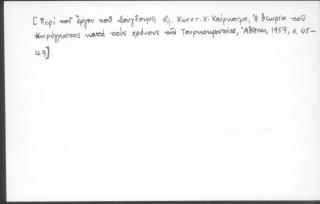 [Περί τοῦ ἔργου τοῦ Σουγδουρῆ βλ. Κωνστ. Κ. Κούρκουλα, Ἡ θεωρία τοῦ
κηρύγματος κατά τούς χρόνους τῆς Τουρκοκρατίας, Ἀθῆναι, 1957, σ. 45-
49].